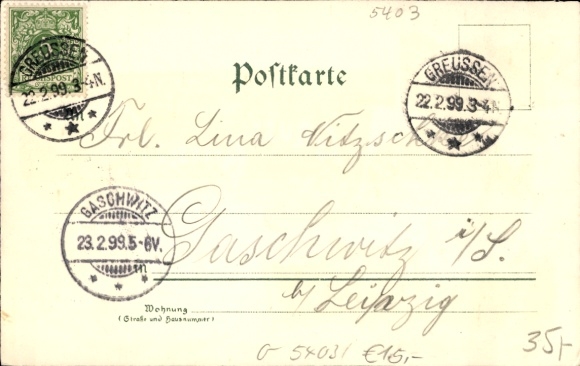 5403
GREUSSEN
22.2.99.3-4N.
REICHSPOST
Postkarte
GREUSSEN
22.2.99.3-4N.
Frl. Lina
GASCHWITZ
23.2.99.5-6V.
Gaschwitz i/S.
b/ Leipzig
Wohnung
(Straße und Hausnummer)
5403/ €15,-
35,-